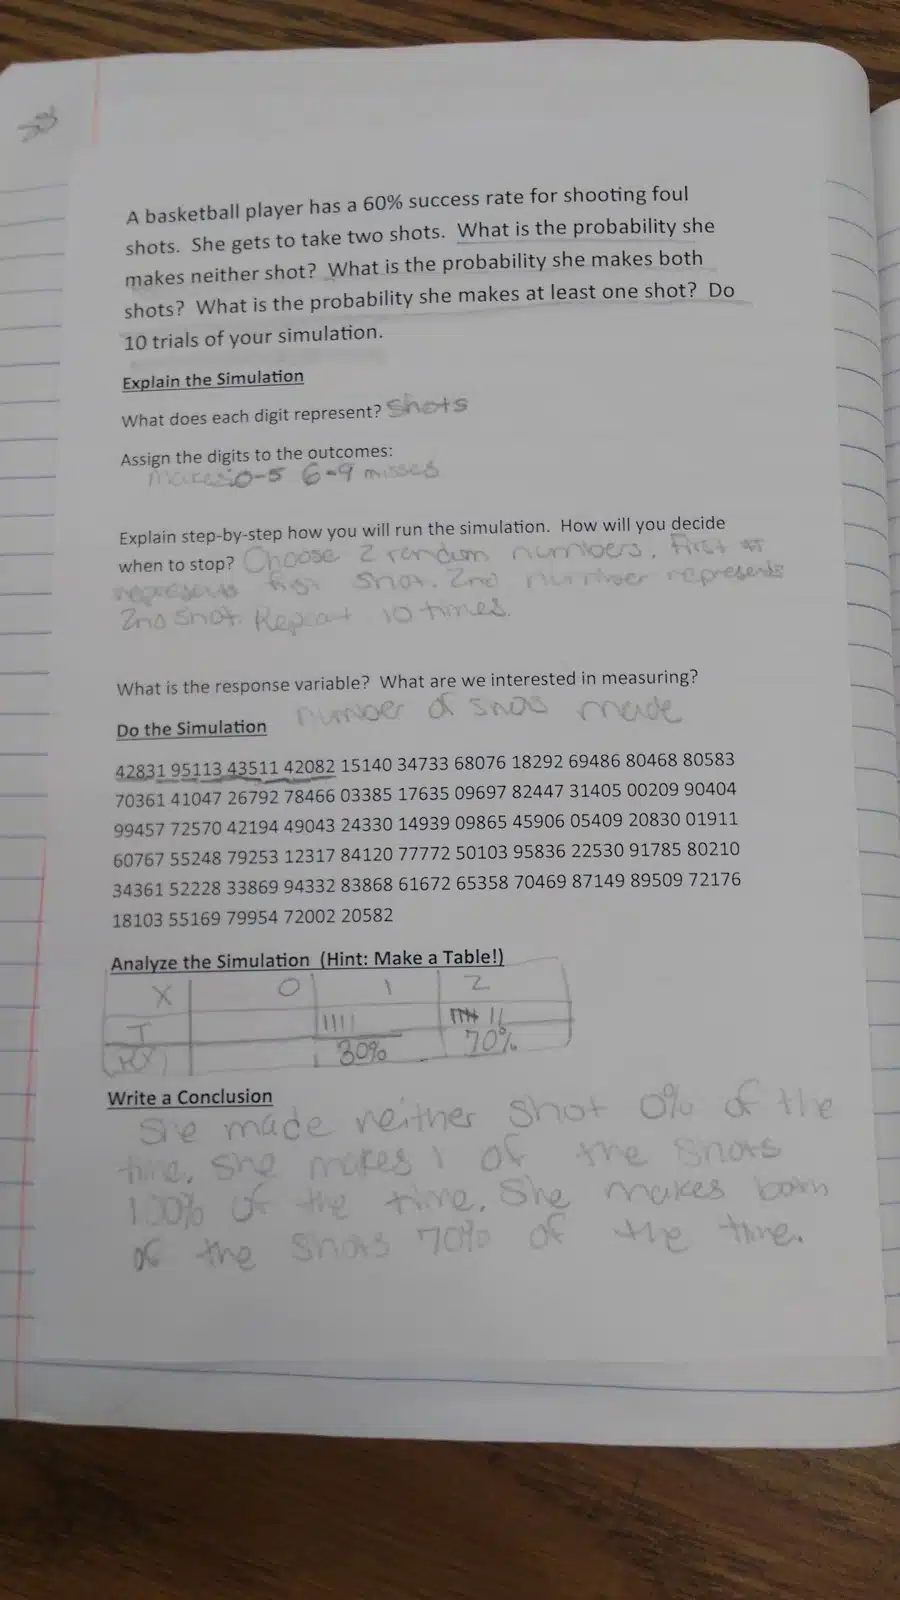 A basketball player has a 60% success rate for shooting foul
shots. She gets to take two shots. What is the probability she
makes neither shot? What is the probability she makes both
shots? What is the probability she makes at least one shot? Do
10 trials of your simulation.
Explain the Simulation
What does each digit represent? Shots
Assign the digits to the outcomes:
makes:0-5 6-9 misses
Explain step-by-step how you will run the simulation. How will you decide
when to stop? Choose 2 random numbers. First #
represents first shot. 2nd number represents
2nd shot. Repeat 10 times.
What is the response variable? What are we interested in measuring?
Do the Simulation number of shots made
42831 95113 43511 42082 15140 34733 68076 18292 69486 80468 80583
70361 41047 26792 78466 03385 17635 09697 82447 31405 00209 90404
99457 72570 42194 49043 24330 14939 09865 45906 05409 20830 01911
60767 55248 79253 12317 84120 77772 50103 95836 22530 91785 80210
34361 52228 33869 94332 83868 61672 65358 70469 87149 89509 72176
18103 55169 79954 72002 20582
Analyze the Simulation (Hint: Make a Table!)
X 0 1 2
T |||| |||| ||
P(X) 30% 70%
Write a Conclusion
She made neither shot 0% of the
time. She makes 1 of the shots
100% of the time. She makes both
of the shots 70% of the time.